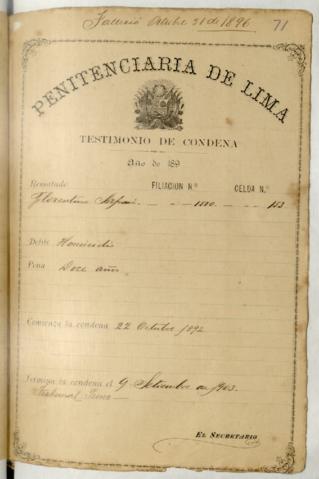 Octubre 21 de 1896 71
PENITENCIARIA DE LIMA
TESTIMONIO DE CONDENA
Año de 189
Rematado FILIACION N.º CELDA N.º
Florentino
Delito Homicidio
Pena Doce años
Comienza la condena 22 Octubre 1892
Termina la condena el 9 Setiembre de 1903
Tribunal
EL SECRETARIO